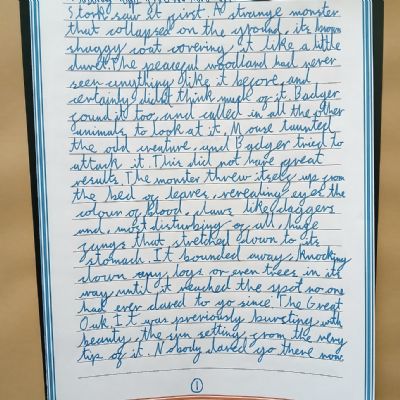 Stork saw it first. A strange monster
that collapsed on the ground, its brown
shaggy coat covering it like a little
duvet. The peaceful woodland had never
seen anything like it before, and
certainly didnt think much of it. Badger
found it too, and called in all the other
animals to look at it. Mouse taunted
the odd creature, and Badger tried to
attack it. This did not have great
results. The monster threw itself up from
the bed of leaves, revealing eyes the
colour of blood, claws like daggers
and, most disturbing of all, huge
fangs that stretched down to its
stomach. It bounded away, knocking
down any logs or even trees in its
way until it reached the spot no one
had ever dared to go since. The Great
Oak. It was previously bursting with
beauty, the sun setting from the very
tip of it. Nobody dared go there now.
1